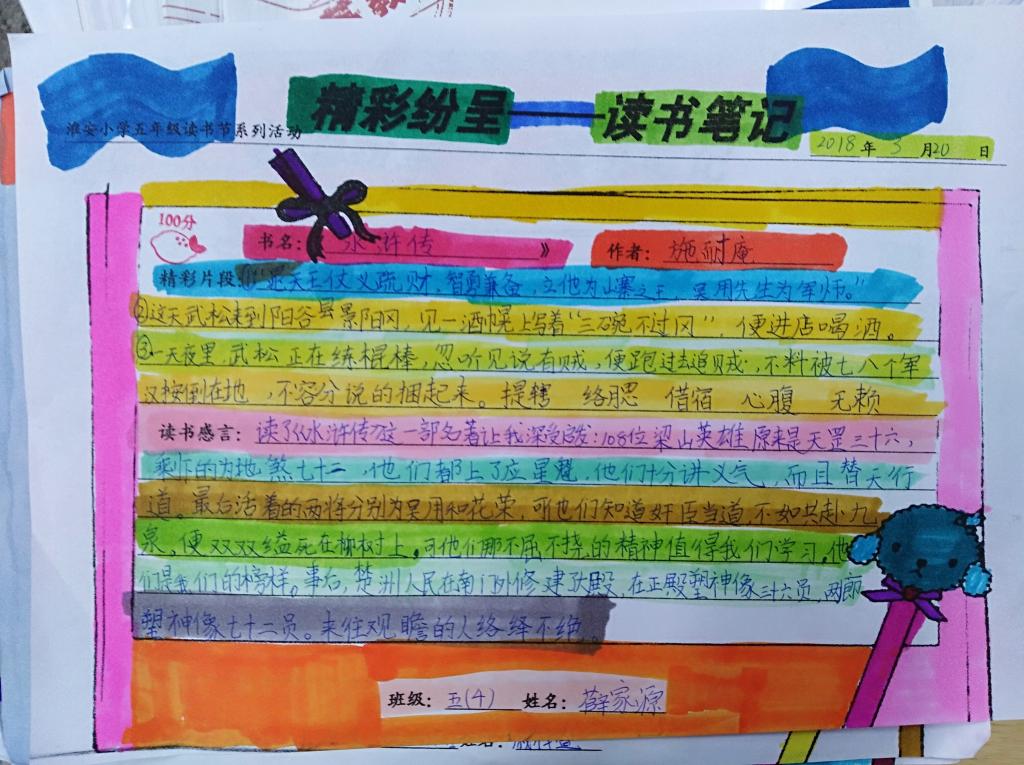 精彩纷呈——读书笔记
淮安小学五年级读书节系列活动
2018年3月20日
100分
书名：《水浒传》
作者：施耐庵
精彩片段：①“晁天王仗义疏财，智勇兼备，立他为山寨之王，吴用先生为军师。”
②这天武松来到阳谷县景阳冈，见一酒幌上写着“三碗不过冈”，便进店喝酒。
③一天夜里，武松正在练棍棒，忽听见说有贼，便跑过去追贼，不料被七八个军
汉按倒在地，不容分说的捆起来。提辖 络腮 借宿 心腹 无赖
读书感言：读了《水浒传》这一部名著让我深受启发：108位梁山英雄原来是天罡三十六，
剩下的为地煞七十二，他们都上了应星魔，他们十分讲义气，而且替天行
道。最后活着的两将分别为吴用和花荣，可他们知道奸臣当道，不如共赴九
泉，便双双缢死在柳树上。可他们那不屈不挠的精神值得我们学习。他
们是我们的榜样。事后，楚洲人民在南门外修建大殿，在正殿塑神像三十六员，两廊
塑神像七十二员。来往观瞻的人络绎不绝。
班级：五(4) 姓名：薛家源
姓名：